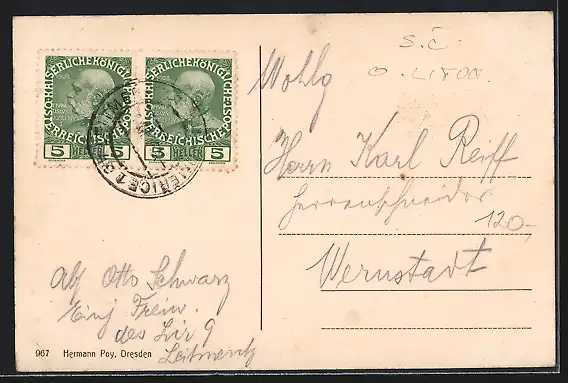 S.Č.
O. LITOM.
KAISERLICHEKÖNIGLICHE ÖSTERREICHISCHE POST
5 HELLER 5
KAISERLICHEKÖNIGLICHE ÖSTERREICHISCHE POST
5 HELLER 5
Wohlg
Herrn Karl Reiff
Herrenschneider
120,-
Wernstadt
Abs Otto Schwarz
Einj Freiw.
des Lir 9
Leitmeritz
967 Hermann Poy, Dresden